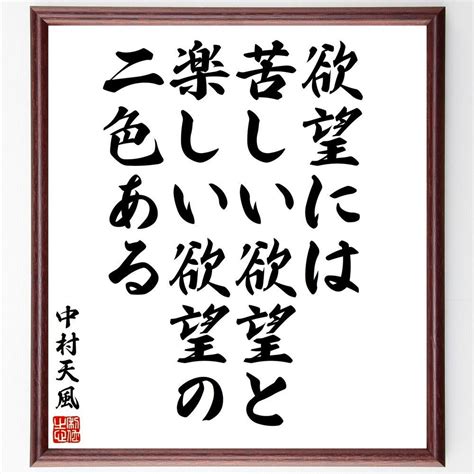 欲望には
苦しい欲望と
楽しい欲望の
二色ある
中村天風